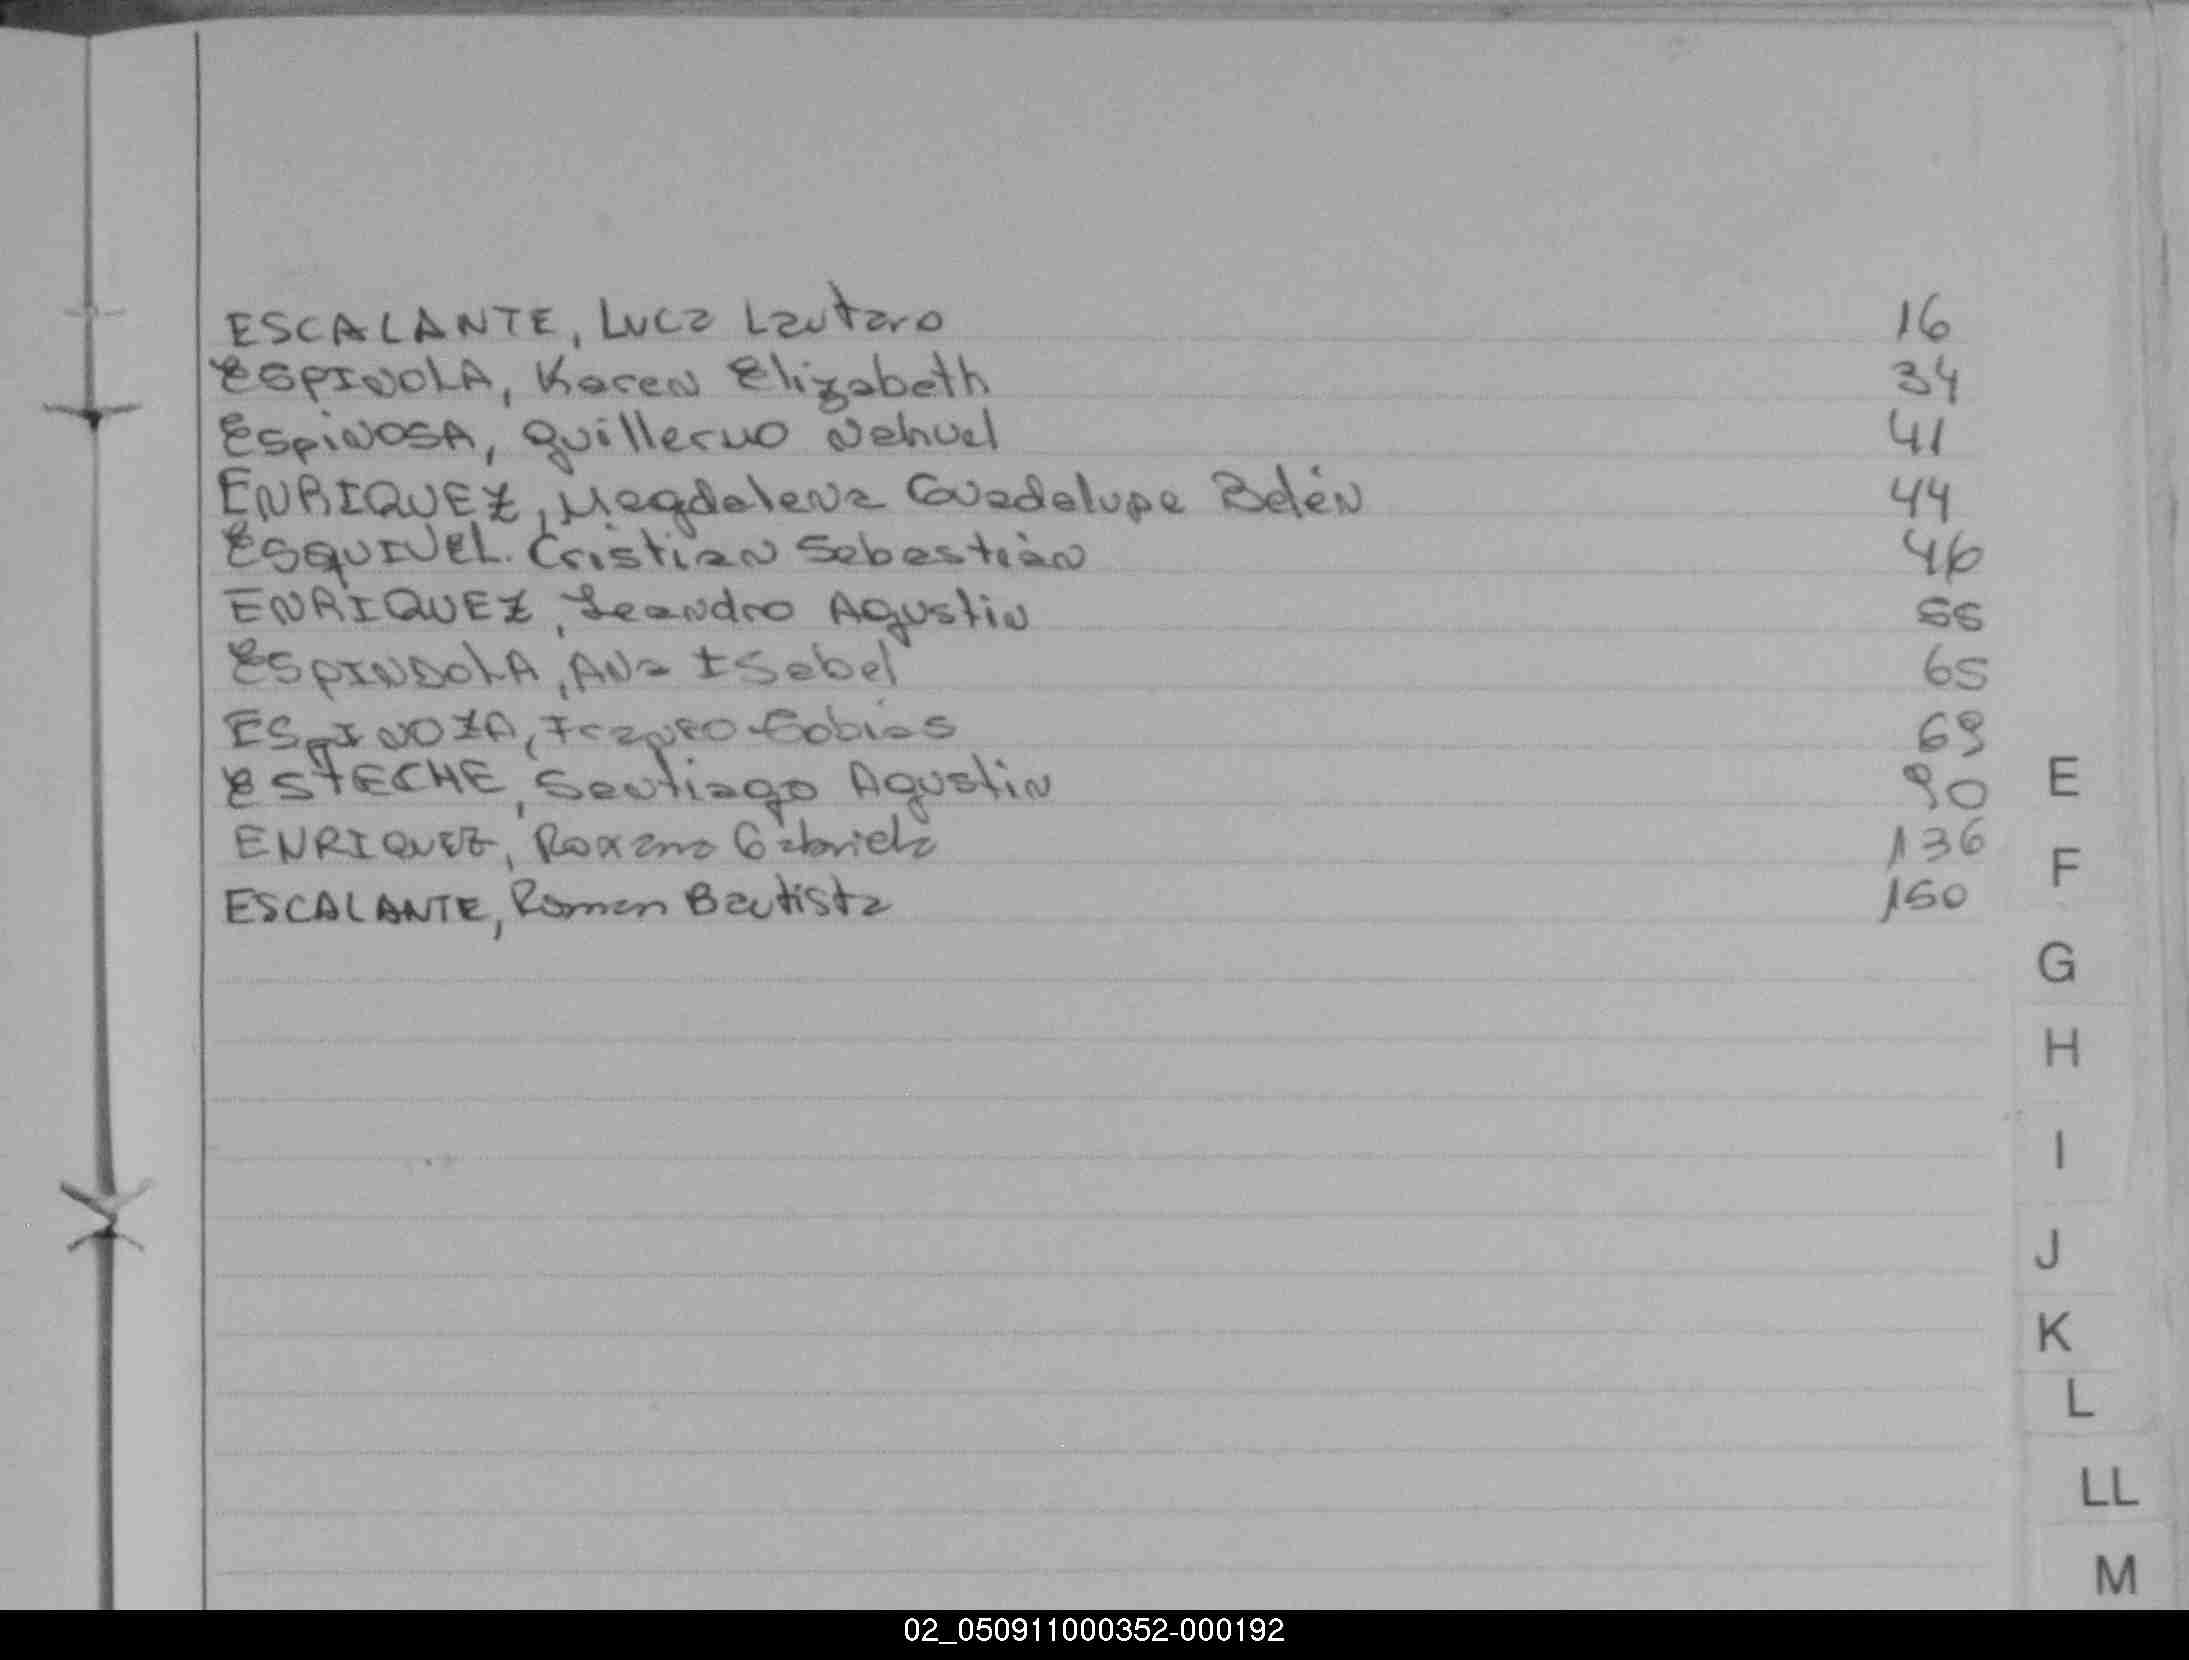 ESCALANTE, Luca Lautaro 16
ESPINOLA, Karen Elizabeth 34
ESPINOSA, Guillermo Nahuel 41
ENRIQUEZ, Magdalena Guadalupe Belén 44
ESQUIVEL. Cristian Sebastián 46
ENRIQUEZ, Leandro Agustin 55
ESPINDOLA, Ana Isabel 65
ESPINOZA, Tobias 69
ESTECHE, Santiago Agustin 90
ENRIQUEZ, Roxana Gabriela 136
ESCALANTE, Roman Bautista 150
E
F
G
H
I
J
K
L
LL
M
02_050911000352-000192